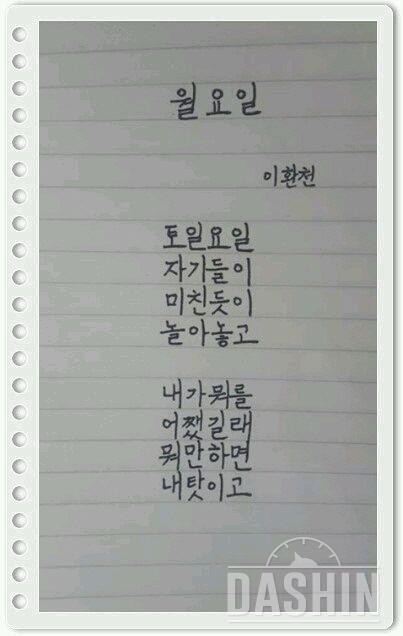 월요일
이환천
토일요일
자기들이
미친듯이
놀아놓고
내가뭐를
어쨌길래
뭐만하면
내탓이고
DASHIN